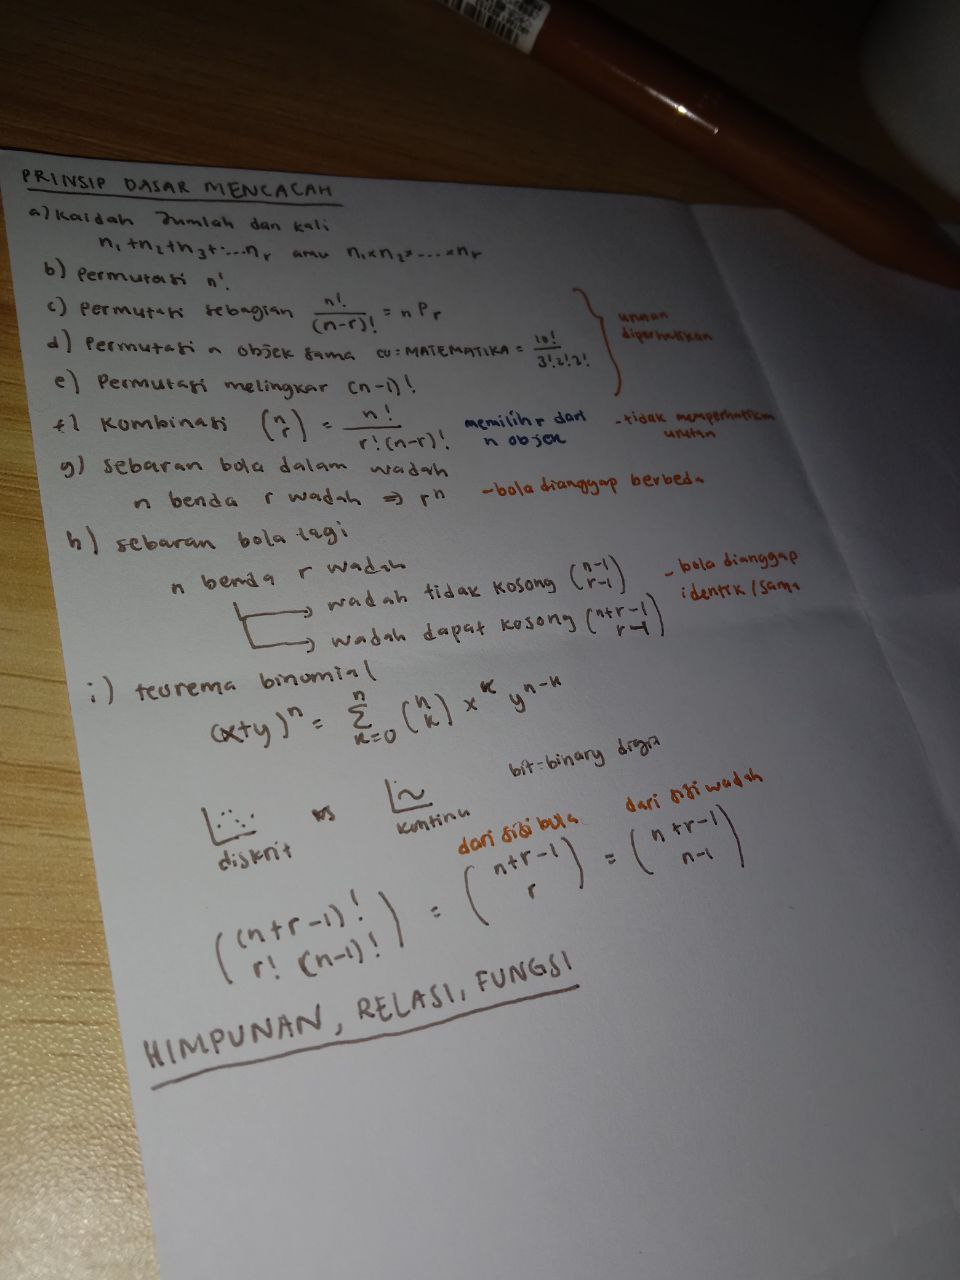 PRINSIP DASAR MENCACAH
a) Kaidah Jumlah dan kali
n₁+n₂+n₃+....nᵣ atau n₁×n₂×....×nᵣ
b) Permutasi n!
c) Permutasi sebagian n!/(n-r)! = nPr
urutan diperhatikan
d) Permutasi n objek sama co: MATEMATIKA = 10!/3!2!2!
e) Permutasi melingkar (n-1)!
f) Kombinasi (n r) = n!/r!(n-r)! memilih r dari n objek - tidak memperhatikan urutan
g) sebaran bola dalam wadah
n benda r wadah ⇒ rⁿ - bola dianggap berbeda
h) sebaran bola lagi
n benda r wadah
→ wadah tidak kosong (n-1 r-1) - bola dianggap identik/sama
→ wadah dapat kosong (n+r-1 r-1)
i) teorema binomial
(x+y)ⁿ = Σ n k=0 (n k) xᵏ yⁿ⁻ᵏ
bit=binary digit
diskrit vs kontinu
dari sisi bola dari sisi wadah
((n+r-1)! r! (n-1)!) = (n+r-1 r) = (n+r-1 n-1)
HIMPUNAN, RELASI, FUNGSI